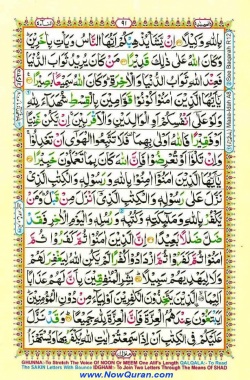 ۹۱
بِاللّٰهِ وَكِيْلًا اِنْ يَّشَاْ يُذْهِبْكُمْ اَيُّهَا النَّاسُ وَيَاْتِ بِاٰخَرِيْنَ
وَكَانَ اللّٰهُ عَلٰى ذٰلِكَ قَدِيْرًا مَنْ كَانَ يُرِيْدُ ثَوَابَ الدُّنْيَا
فَعِنْدَ اللّٰهِ ثَوَابُ الدُّنْيَا وَالْاٰخِرَةِ وَكَانَ اللّٰهُ سَمِيْعًا بَصِيْرًا
يٰٓاَيُّهَا الَّذِيْنَ اٰمَنُوْا كُوْنُوْا قَوّٰمِيْنَ بِالْقِسْطِ شُهَدَآءَ لِلّٰهِ
وَلَوْ عَلٰٓى اَنْفُسِكُمْ اَوِ الْوَالِدَيْنِ وَالْاَقْرَبِيْنَ اِنْ يَّكُنْ غَنِيًّا
اَوْ فَقِيْرًا فَاللّٰهُ اَوْلٰى بِهِمَا فَلَا تَتَّبِعُوا الْهَوٰٓى اَنْ تَعْدِلُوْا
وَاِنْ تَلْوٗٓا اَوْ تُعْرِضُوْا فَاِنَّ اللّٰهَ كَانَ بِمَا تَعْمَلُوْنَ خَبِيْرًا
يٰٓاَيُّهَا الَّذِيْنَ اٰمَنُوْٓا اٰمِنُوْا بِاللّٰهِ وَرَسُوْلِهٖ وَالْكِتٰبِ الَّذِيْ
نَزَّلَ عَلٰى رَسُوْلِهٖ وَالْكِتٰبِ الَّذِيْٓ اَنْزَلَ مِنْ قَبْلُ وَمَنْ
يَّكْفُرْ بِاللّٰهِ وَمَلٰٓئِكَتِهٖ وَكُتُبِهٖ وَرُسُلِهٖ وَالْيَوْمِ الْاٰخِرِ فَقَدْ
ضَلَّ ضَلٰلًاۢ بَعِيْدًا اِنَّ الَّذِيْنَ اٰمَنُوْا ثُمَّ كَفَرُوْا ثُمَّ
اٰمَنُوْا ثُمَّ كَفَرُوْا ثُمَّ ازْدَادُوْا كُفْرًا لَّمْ يَكُنِ اللّٰهُ لِيَغْفِرَ
لَهُمْ وَلَا لِيَهْدِيَهُمْ سَبِيْلًا بَشِّرِ الْمُنٰفِقِيْنَ بِاَنَّ لَهُمْ عَذَابًا
اَلِيْمًا الَّذِيْنَ يَتَّخِذُوْنَ الْكٰفِرِيْنَ اَوْلِيَآءَ مِنْ دُوْنِ الْمُؤْمِنِيْنَ
اَيَبْتَغُوْنَ عِنْدَهُمُ الْعِزَّةَ فَاِنَّ الْعِزَّةَ لِلّٰهِ جَمِيْعًا وَقَدْ نَزَّلَ
عَلَيْكُمْ فِي الْكِتٰبِ اَنْ اِذَا سَمِعْتُمْ اٰيٰتِ اللّٰهِ يُكْفَرُ بِهَا وَيُسْتَهْزَاُ
GHUNNA- To Stretch The Voice Of NOON Or MEEM One Alif's Length QALQALA- To Read
The SAKIN Letters With Bounce IDGHAM- To Join Two Letters Through The Means Of SHAD
www.NowQuran.com